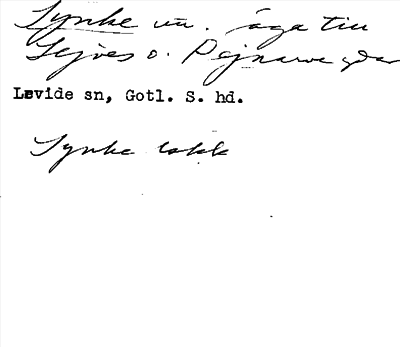 Lynke un. äga till
Lejves o. Pejnarve gdar
Levide sn, Gotl. S. hd.
Lynke takk